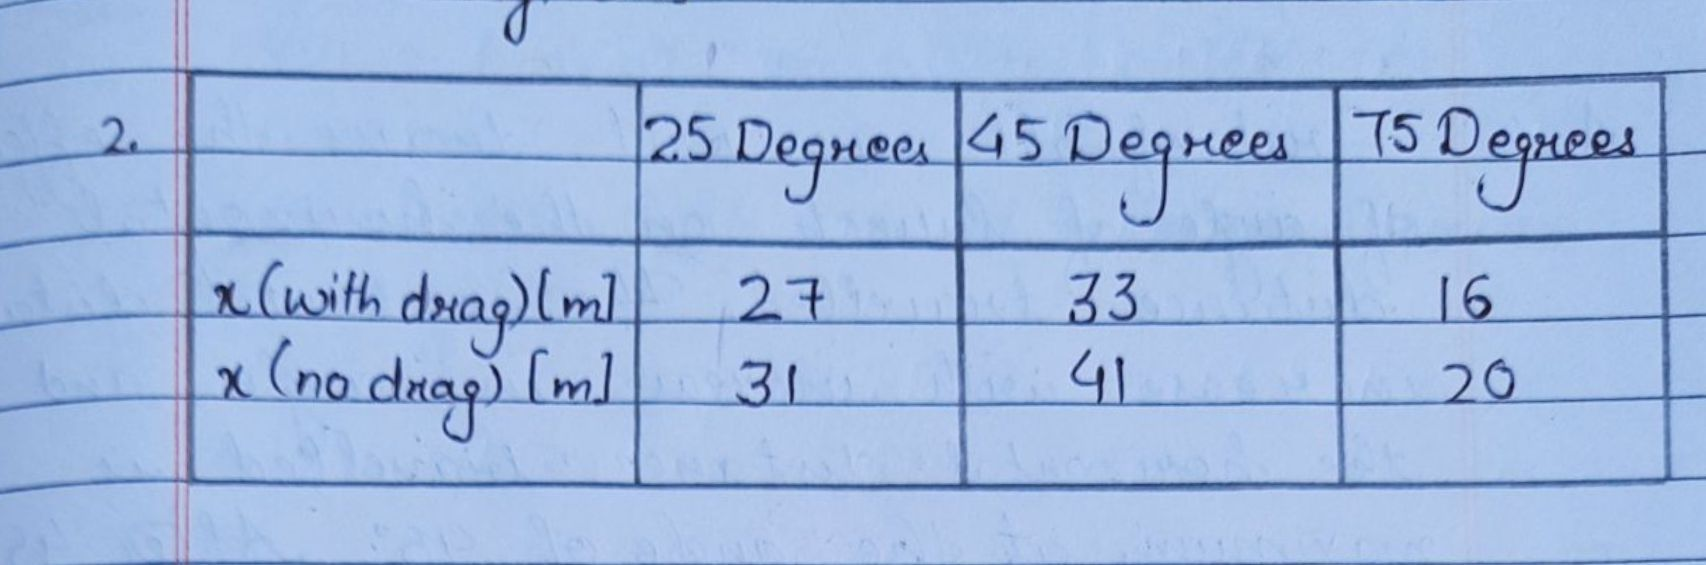 2.
25 Degrees 45 Degrees 75 Degrees
x (with drag) [m] 27 33 16
x (no drag) [m] 31 41 20